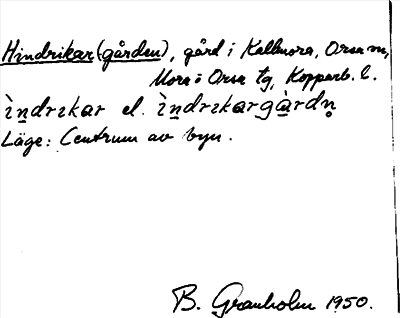 Hindrikar(gården), gård i Kallmora, Orsa sn,
Mora o Orsa tg, Kopparb. l.
ìndrɪkar el. ìndrɪkargàrdn̥
Läge: Centrum av byn.
B. Granholm 1950.